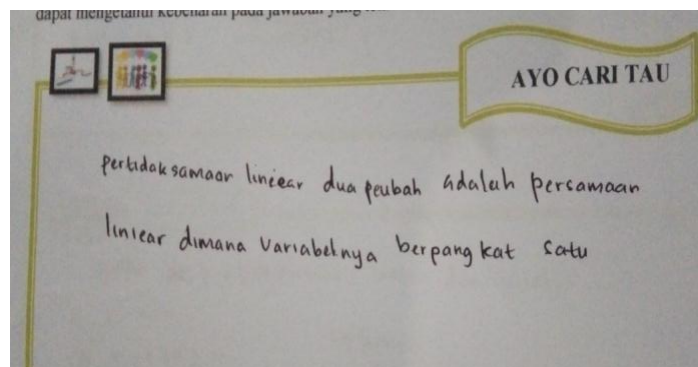 dapat mengetahui kebenaran pada jawaban yang
AYO CARI TAU
pertidaksamaan lineear dua peubah adalah persamaan
liniear dimana variabelnya berpangkat satu